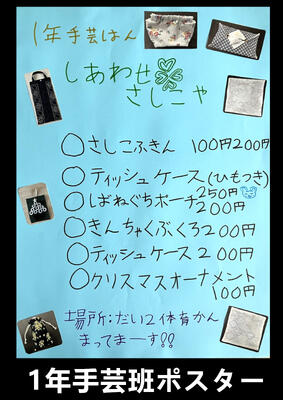 1年手芸はん
しあわせ
さしこや
○さしこふきん 100円200円
○ティッシュケース(ひもつき)
250円
○ばねぐちポーチ
200円
○きんちゃくぶくろ200円
○ティッシュケース200円
○クリスマスオーナメント
100円
場所:だい2体育かん
まってまーす!!
1年手芸班ポスター